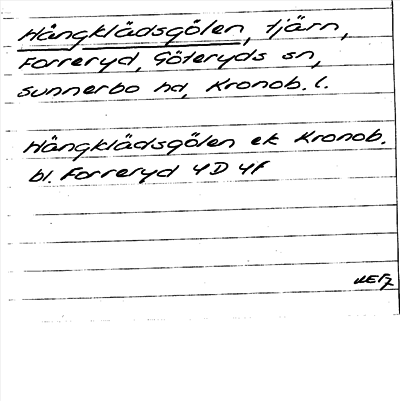 Hångklädsgölen, tjärn,
Forreryd, Göteryds sn,
Sunnerbo hd, Kronob. l.
Hångklädsgölen ek Kronob.
bl. Forreryd 4D 4f